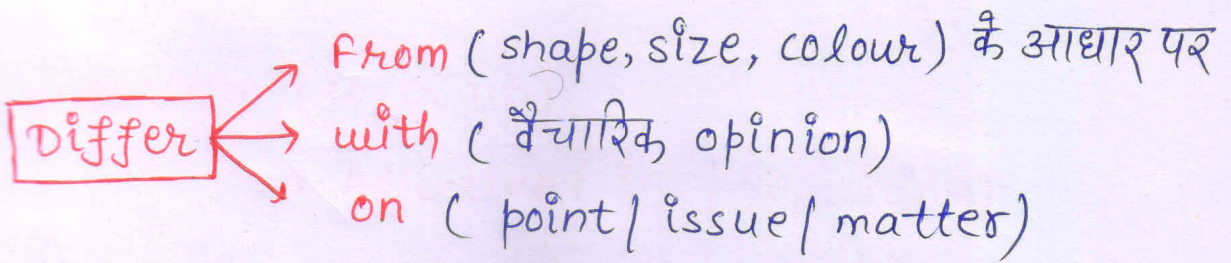 From (shape, size, colour) के आधार पर
Differ with (वैचारिक opinion)
on (point/issue/matter)